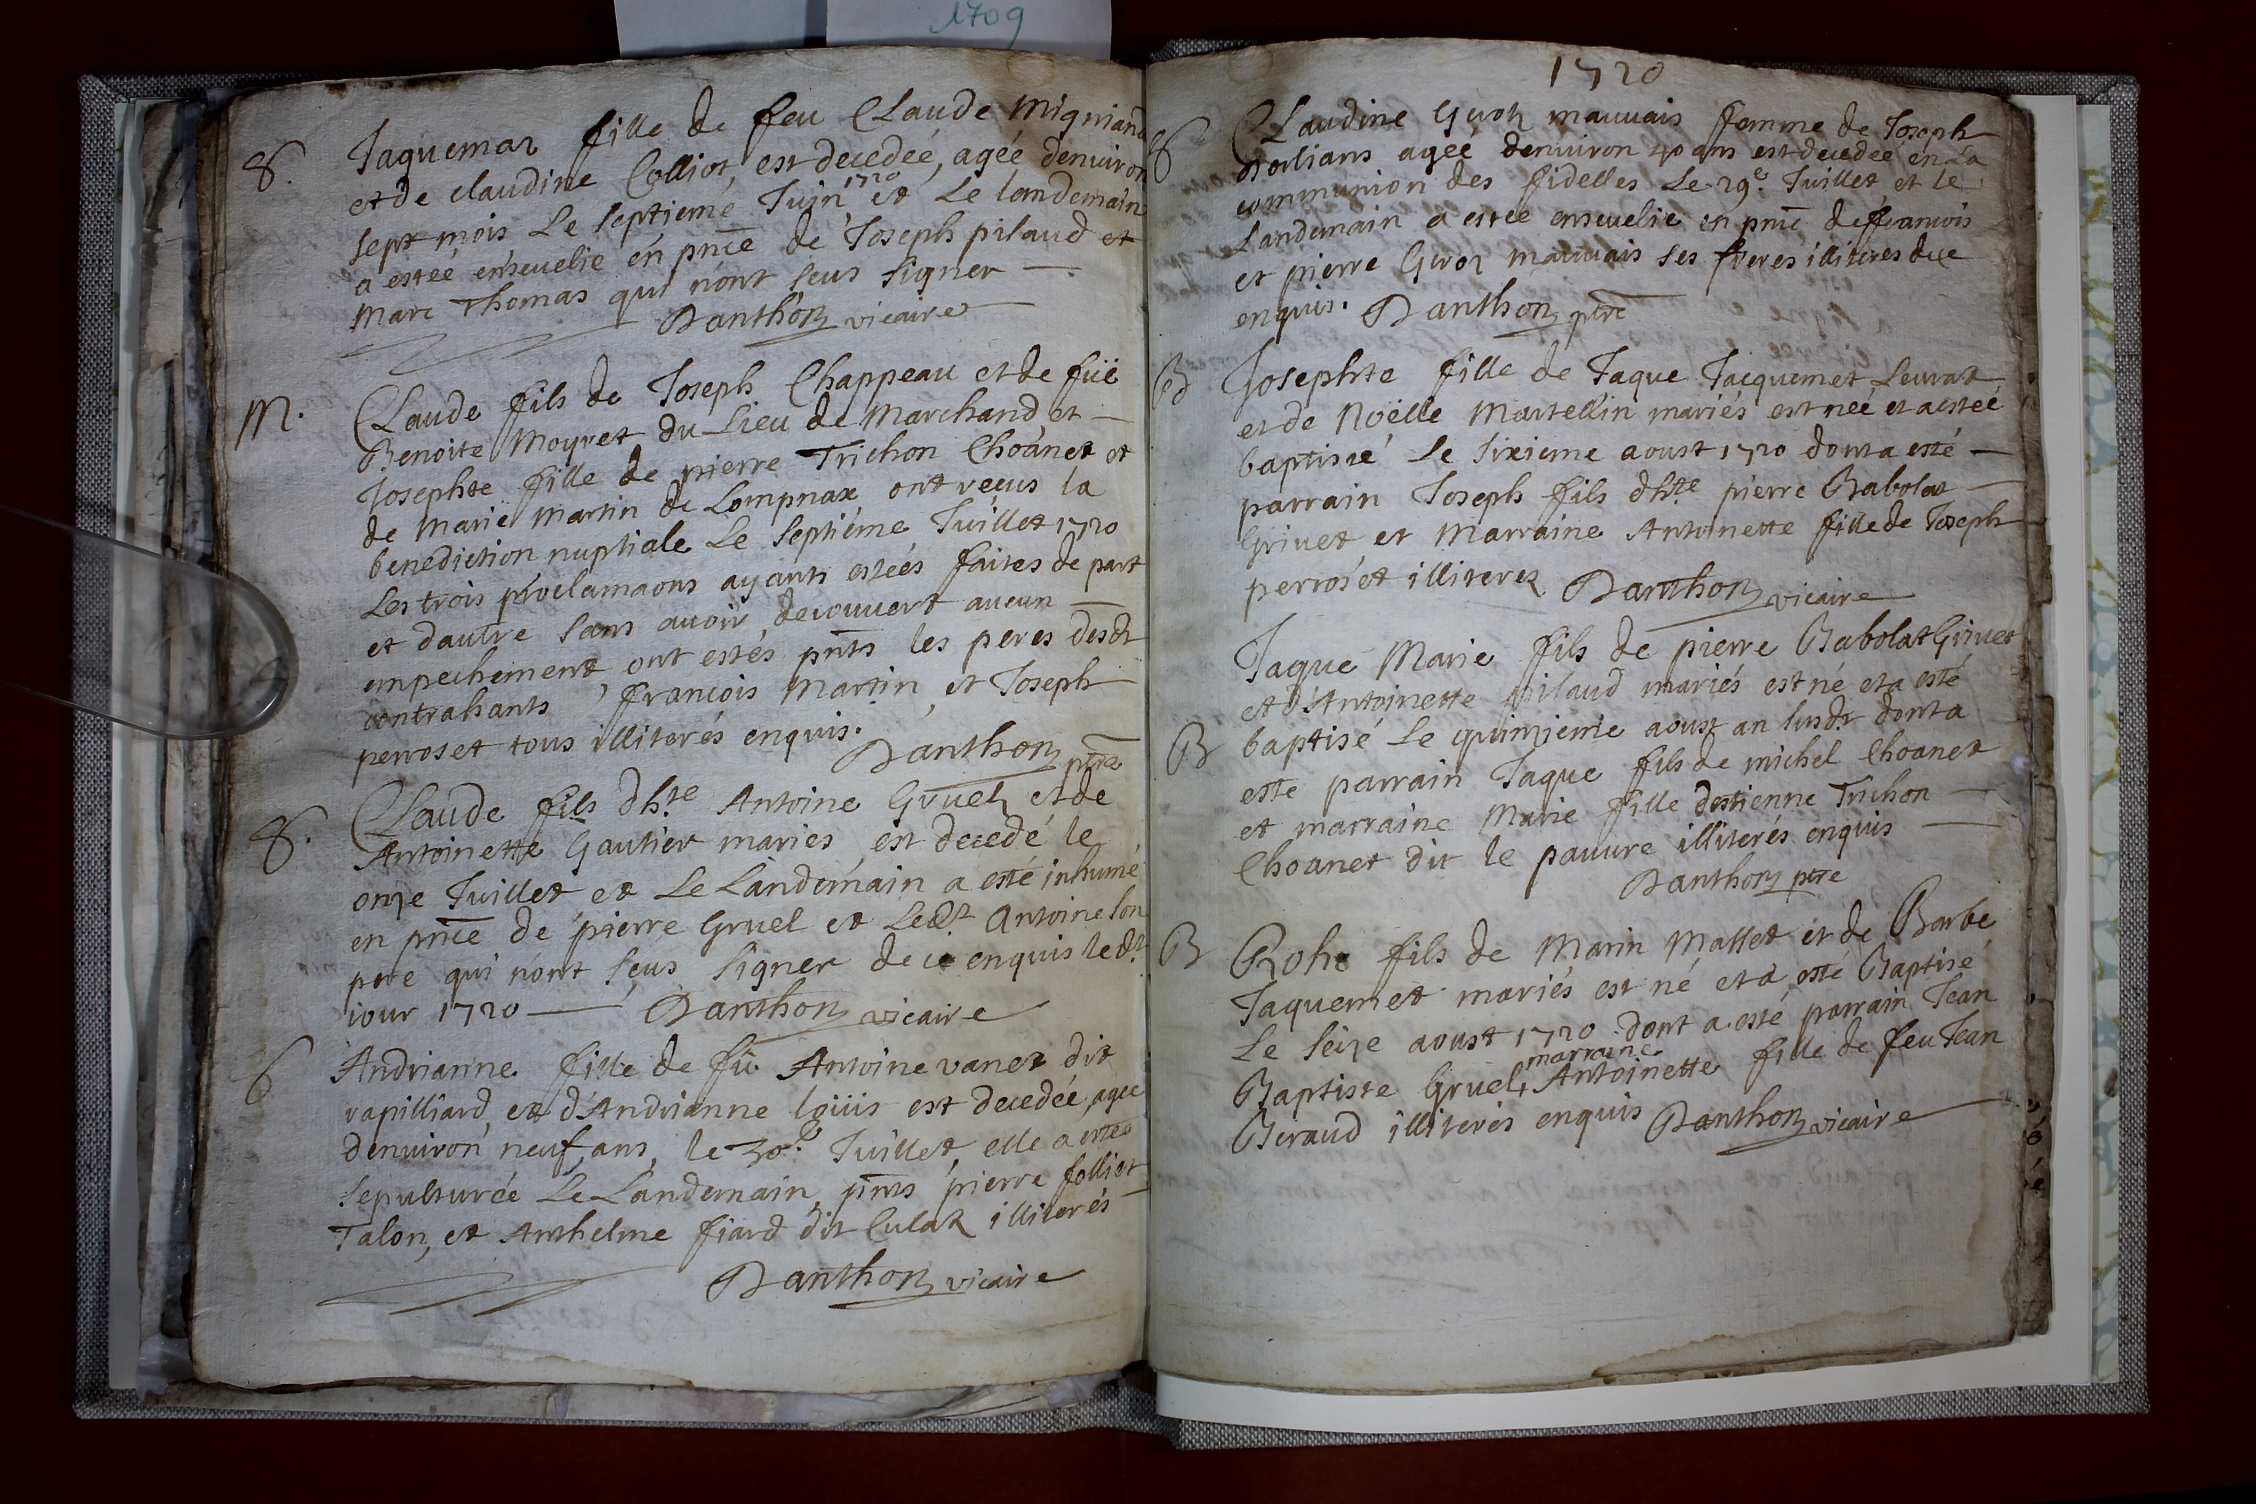 1709
8. Jaquemaz fille de feu Claude Migniand
et de claudine Colliot, est decedeé, ageé denuiron
sept mois Le septiemé Juin 1720 et Le landemain
a esteé enseuelie en pnce de Joseph pilaud et
Marc Thomas qui nont seus signer
Danthon vicaire
M. Claude fils de Joseph Chappeau et de füe
Benoite Moyret du Lieu de Marchand et
Josephte fille de pierre Trichon Choanet et
de Marie Martin de Lompnax ont recus la
benediction nuptiale Le septiéme Juillet 1720
Les trois proclamaons ayants esteés faites de part
et dautre sans auoir decouuert aucun
empechement, ont estés pnts les peres desdt
contrahants, francois Martin, et Joseph
perroset tous illiterés enquis.
Danthon ptre
8. Claude fils dhte Antoine Gruel et de
Antoinette Gautier maries est decedé le
onze Juillet et Le Landemain a esté inhumé
en pnce de pierre Gruel et Ledt Antoine son
pere qui nont seus signer de ce enquis ledt
iour 1720 Danthon vicaire
6 Andrianne fille de fü Antoine vanet dit
rapilliard et d'Andrianne loüis est decedée agee
denuiron neuf ans, le 30e Juillet, elle a esteé
sepulturée Le Landemain pnts pierre folliet
Talon, et Anthelme fiard dit Culaz illiterés
Danthon vicaire
1720
6 Claudine Guoz mauuais femme de Joseph
orlians ageé denuiron 40 ans est decedeé en La
communion des fidelles Le 29e Juillet et le
Landemain a esteé enseuelie en pnce de francois
et pierre Geroz mauuais ses freres illiteres de ce
enquis. Danthon ptre
B Josephte fille de Jaque Jacquemet Leurat
et de Noëlle Martellin mariés est neé et a esteé
baptiseé Le sixieme aoust 1720 dont a esté
parrain Joseph fils dhte pierre Babolat
Griuet et Marraine Antoinette fille de Joseph
perroset illiteres Danthon vicaire
B Jaque Marie fils de pierre Babolat Griuet
et d'Antoinette pilaud mariés est né et a esté
baptisé Le quinzieme aoust an susdt dont a
esté parrain Jaque fils de michel Choanet
et marraine Marie fille destienne Trichon
Choanet dit le pauure illiterés enquis
Danthon ptre
B Roh fils de Marin Mallet et de Barbe
Jaquemet mariés est né et a esté Baptisé
Le seize aoust 1720 dont a esté parrain Jean
Baptiste Gruel, marraine Antoinette fille de feu Jean
Beraud illiterés enquis Danthon vicaire